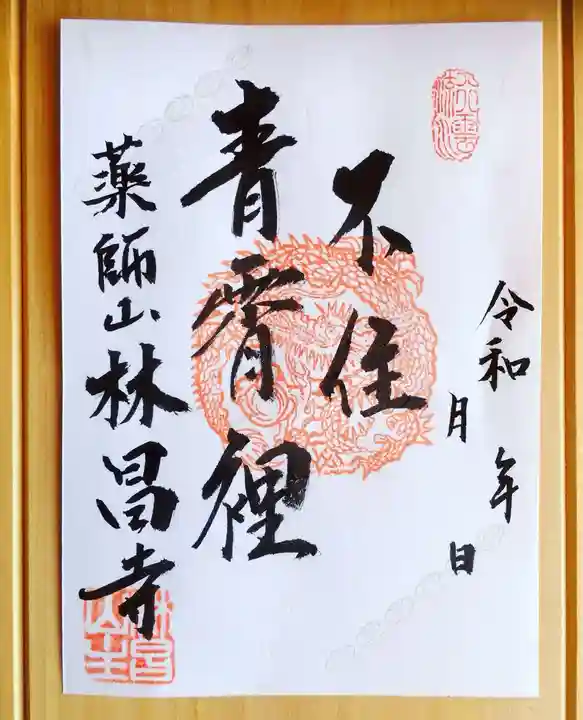 令和 年
月 日
不住
青霄裡
薬師山林昌寺